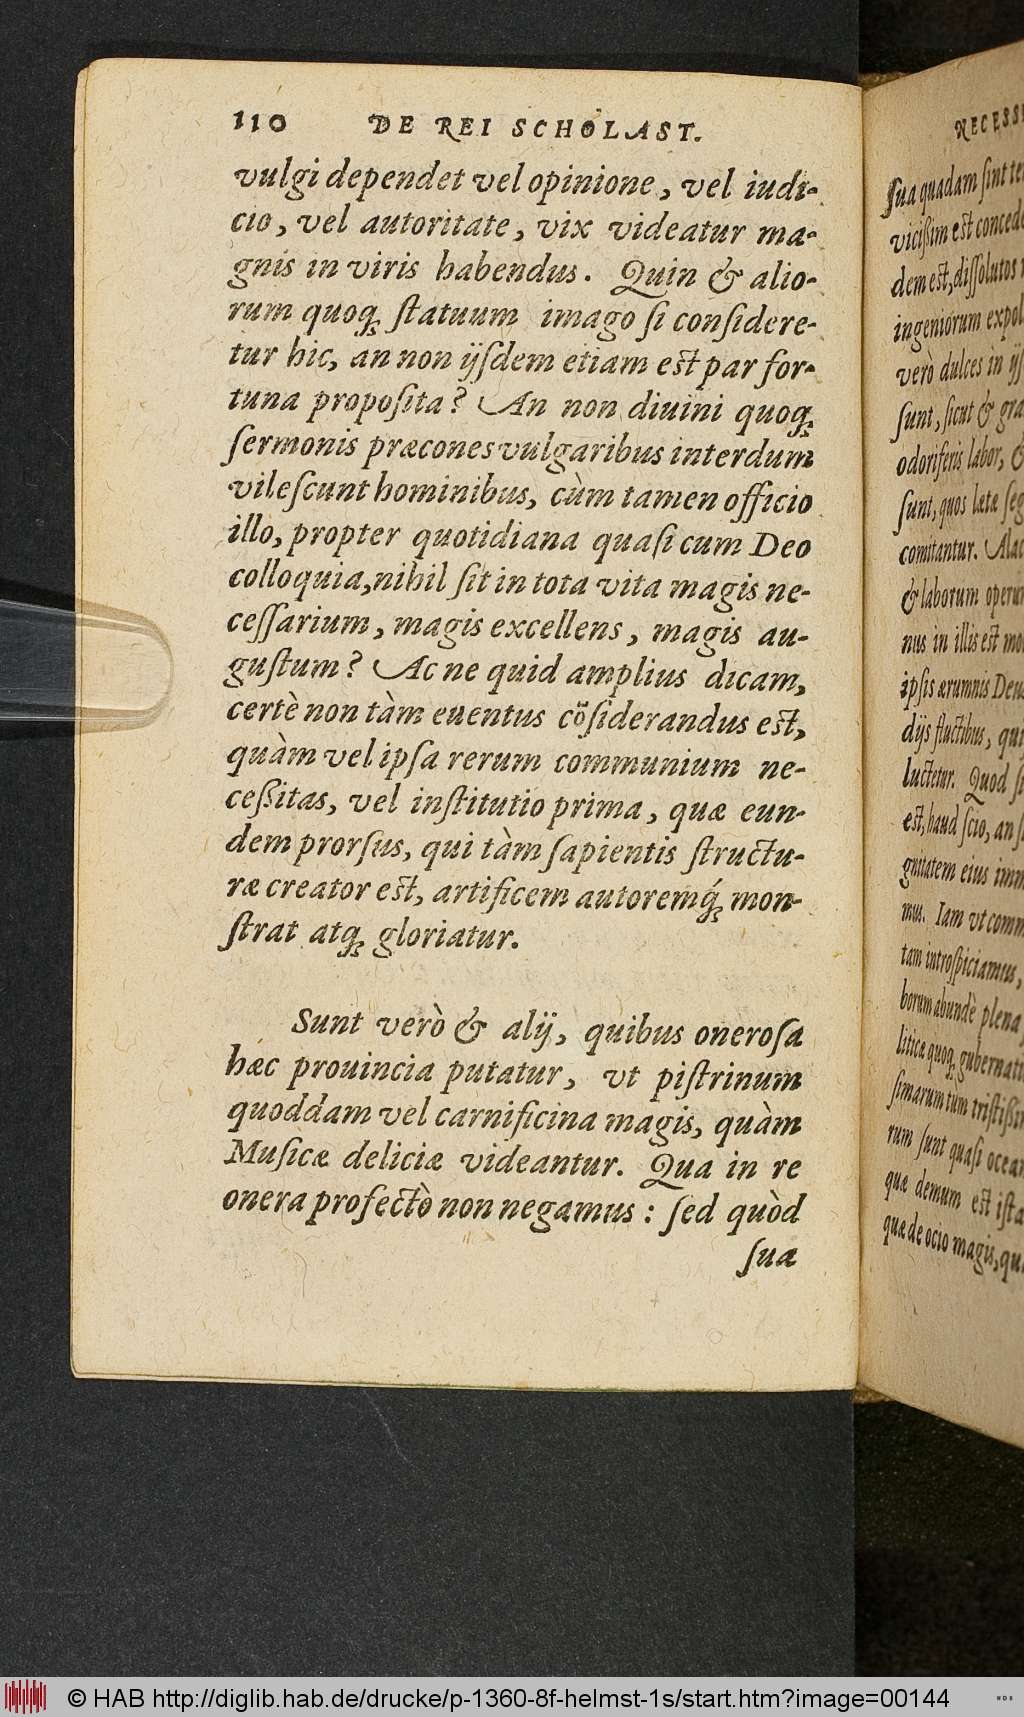 110 DE REI SCHOLAST.
vulgi dependet vel opinione, vel iudi-
cio, vel autoritate, vix videatur ma-
gnis in viris habendus. Quin & alio-
rum quoqꝫ ſtatuum imago ſi conſidere-
tur hic, an non ijſdem etiam eſt par for-
tuna propoſita? An non diuini quoqꝫ
ſermonis præcones vulgaribus interdum
vileſcunt hominibus, cùm tamen officio
illo, propter quotidiana quaſi cum Deo
colloquia, nihil ſit in tota vita magis ne-
ceſſarium, magis excellens, magis au-
guſtum? Ac ne quid amplius dicam,
certè non tàm euentus cõſiderandus eſt,
quàm vel ipſa rerum communium ne-
ceßitas, vel inſtitutio prima, quæ eun-
dem prorſus, qui tàm ſapientis ſtructu-
ræ creator eſt, artificem autoremq́ꝫ mon-
ſtrat atqꝫ gloriatur.
Sunt verò & alij, quibus oneroſa
hæc prouincia putatur, vt piſtrinum
quoddam vel carnificina magis, quàm
Muſicæ deliciæ videantur. Qua in re
onera profectò non negamus: ſed quòd
ſuæ
NECESS
Sua quadam ſint
vicißim eſt
dem eſt, diſſolutos
ingeniorum
verò dulces in
ſunt, ſicut &
odoriferis labor, &
ſunt, quos lætæ
comitantur.
& laborum
nus in illis eſt
ipſis ærumnis
dijs fluctibus,
luctetur. Quod
eſt, haud ſcio, an
gnitatem eius
mus. Iam vt
tam introſpiciamus,
borum abundè plena
liticæ quoqꝫ
ſimarum tum
rum ſunt quaſi
quæ demum eſt
quæ de ocio magis,
© HAB http://diglib.hab.de/drucke/p-1360-8f-helmst-1s/start.htm?image=00144